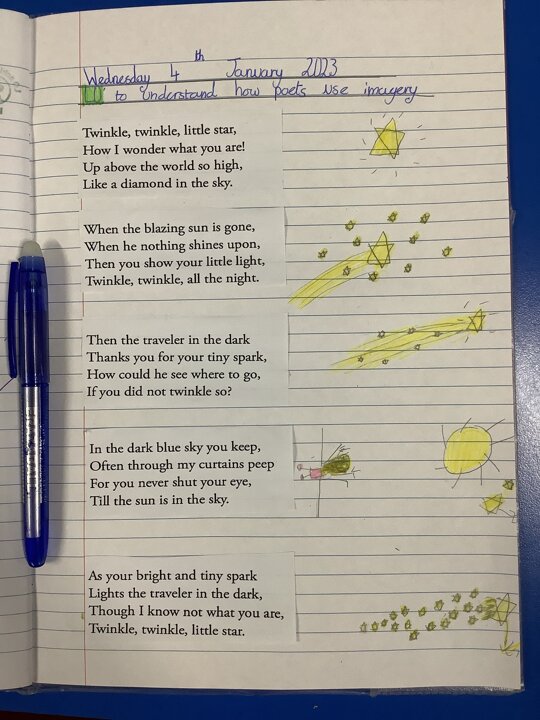 Wednesday 4th January 2023
LO to understand how poets use imagery
Twinkle, twinkle, little star,
How I wonder what you are!
Up above the world so high,
Like a diamond in the sky.
When the blazing sun is gone,
When he nothing shines upon,
Then you show your little light,
Twinkle, twinkle, all the night.
Then the traveler in the dark
Thanks you for your tiny spark,
How could he see where to go,
If you did not twinkle so?
In the dark blue sky you keep,
Often through my curtains peep
For you never shut your eye,
Till the sun is in the sky.
As your bright and tiny spark
Lights the traveler in the dark,
Though I know not what you are,
Twinkle, twinkle, little star.